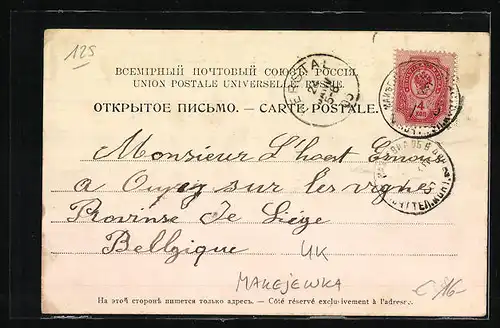 125
ВСЕМІРНЫЙ ПОЧТОВЫЙ СОЮЗЪ. РОССІЯ.
UNION POSTALE UNIVERSELLE. RUSSIE.
ОТКРЫТОЕ ПИСЬМО. — CARTE POSTALE.
4
КОП
Monsieur L'hoest Ernous
a Oupey sur les vignes
Province de Liége
Bellgique
UK
MAKEJEWKA
€ 16-
На этой сторонѣ пишется только адресъ. — Côté réservé exclusivement à l'adresse.